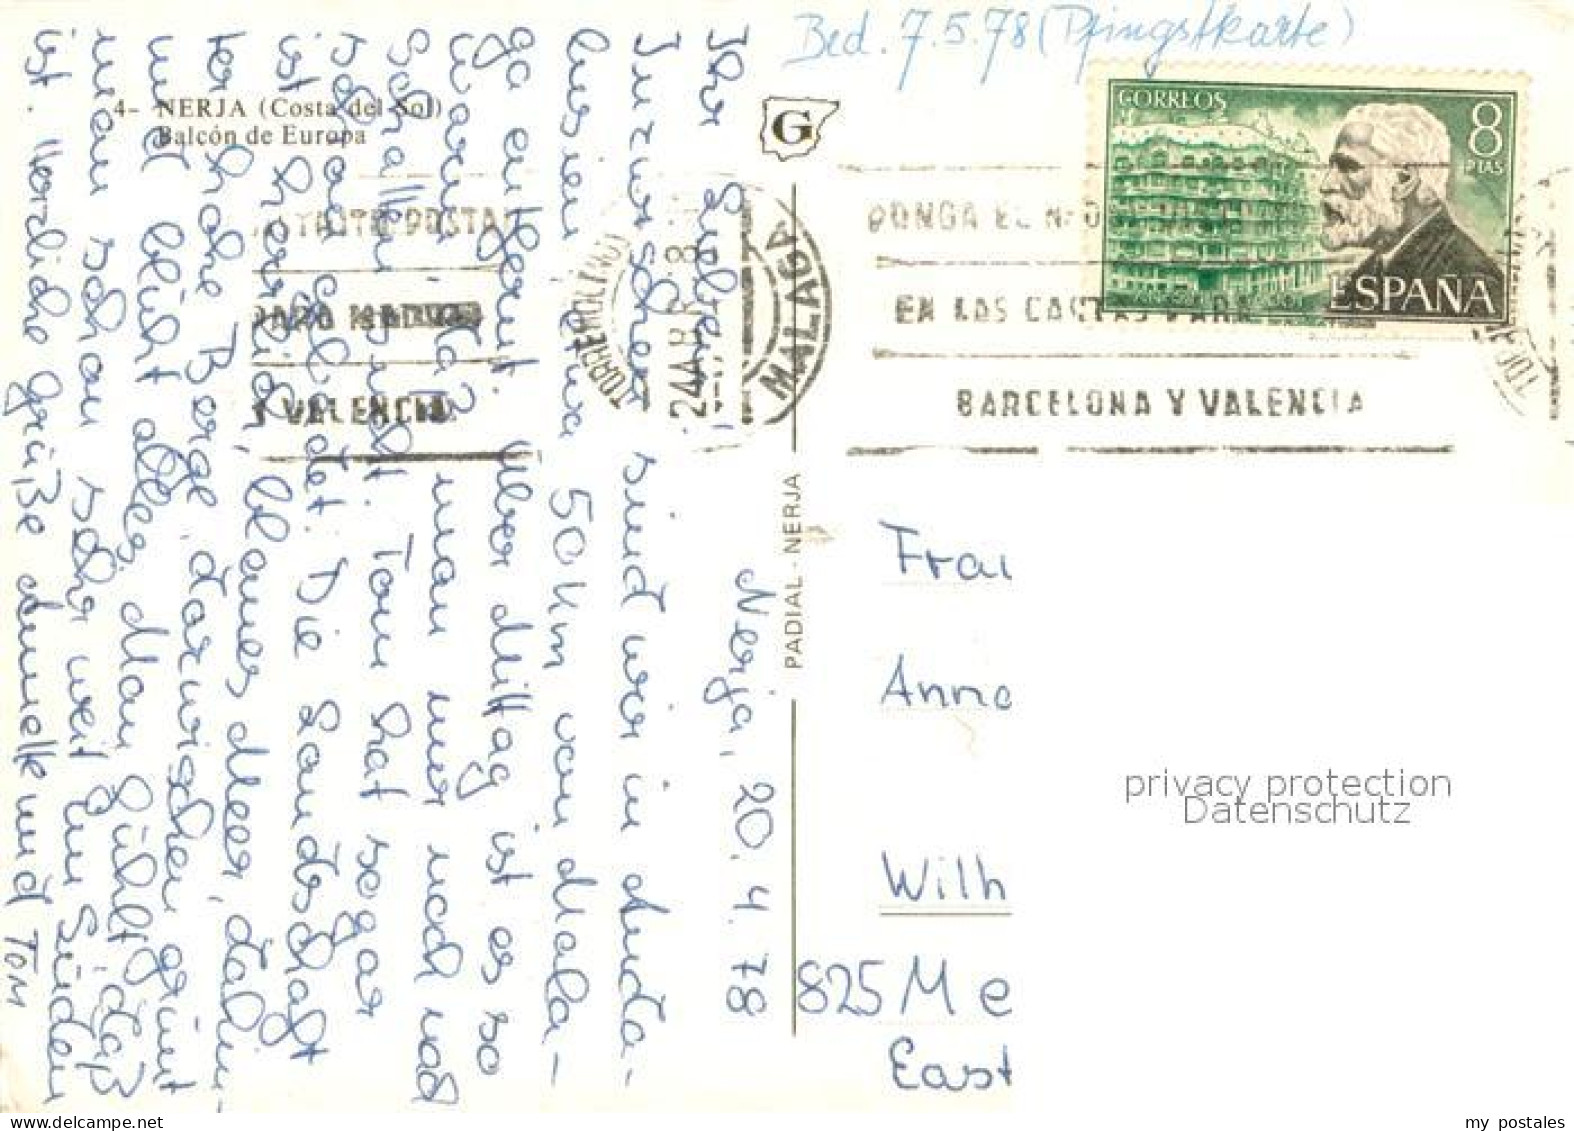 Bed. 7.5.78 (Pfingstkarte)
4- NERJA (Costa del Sol)
Balcón de Europa
G
CORREOS
8
PTAS
ESPAÑA
POSTAL
Y VALENCIA
TORREMOLINOS
MALAGA
PONGA EL
EN LAS CARTAS PARA
BARCELONA Y VALENCIA
PADIAL - NERJA
Nerja, 20. 4. 78
Ihr Lieben,
Inzwischen sind wir in Anda-
lusien etwa 50 km von Mala-
ga entfernt. Über Mittag ist es so
warm, daß man nur noch
Schatten sucht. Tom hat sogar
schon gebadet. Die Landschaft
ist herrlich, blaues Meer, dahin-
ter hohe Berge, dazwischen grünt
und blüht alles. Man fühlt, daß
man schon sehr weit im Süden
ist. Herzliche Grüße Annette und Tom
Frau
Anna
Wilh
825 Me
East
privacy protection
Datenschutz
my postales